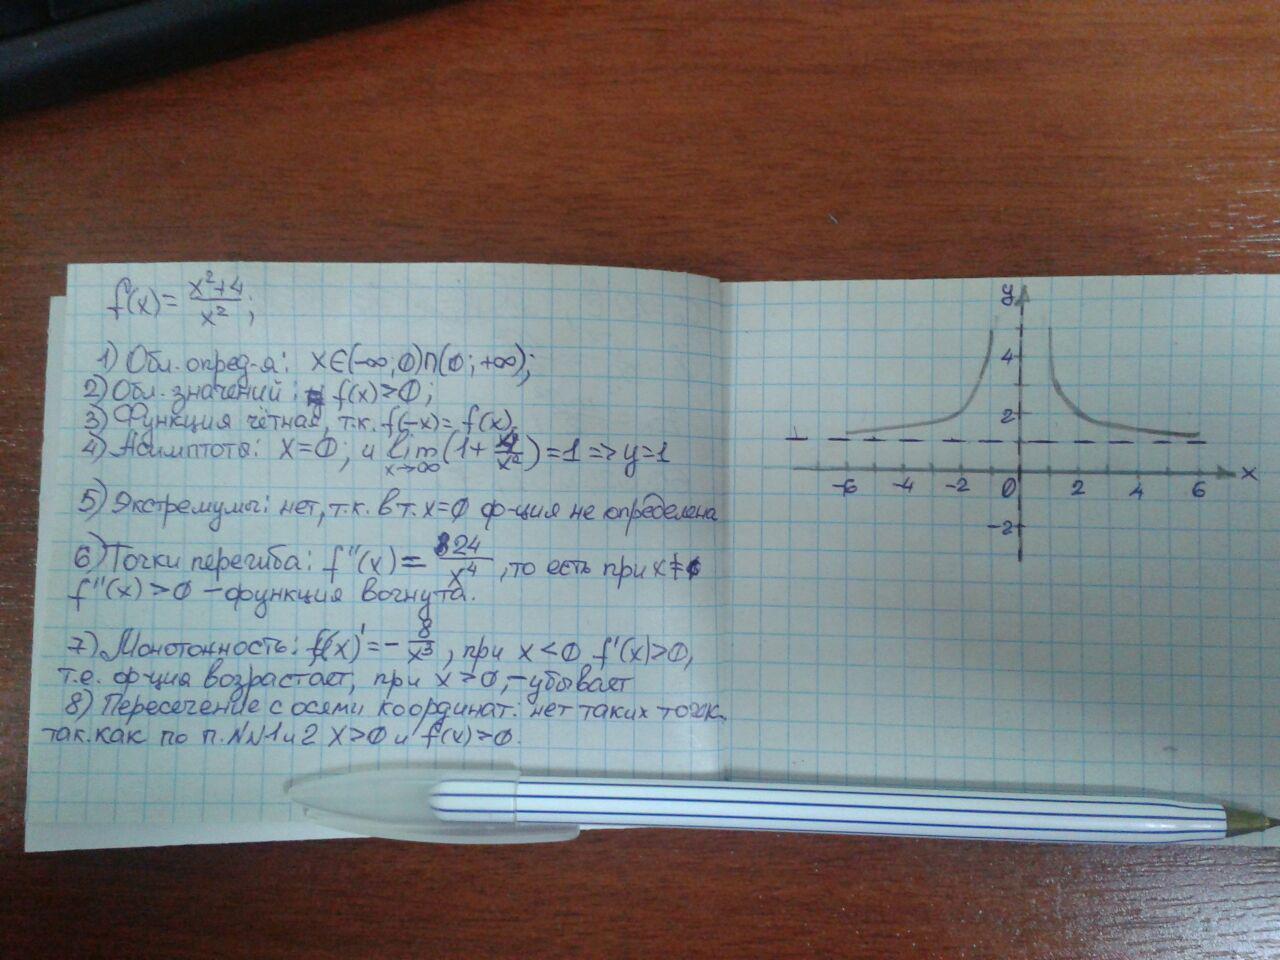 f(x)= x²+4/x²;
1) Обл. опред-я: x∈(-∞;0)∩(0;+∞);
2) Обл. значений: f(x)>0;
3) Функция чётная, т.к. f(-x)=f(x).
4) Асимптота: x=0; и lim x→∞ (1+4/x²)=1=>y=1
5) Экстремумы: нет, т.к. в т. x=0 ф-ция не определена
6) Точки перегиба: f''(x)= 24/x⁴, то есть при x≠0
f''(x)>0 – функция вогнута.
7) Монотонность: f(x)'=-8/x³, при x<0 f'(x)>0,
т.е. ф-ция возрастает, при x>0, – убывает
8) Пересечение с осями координат: нет таких точек,
так.как по п.NN1и2 x>0 и f(x)>0.
y
4
2
-6 -4 -2 0 2 4 6 x
-2